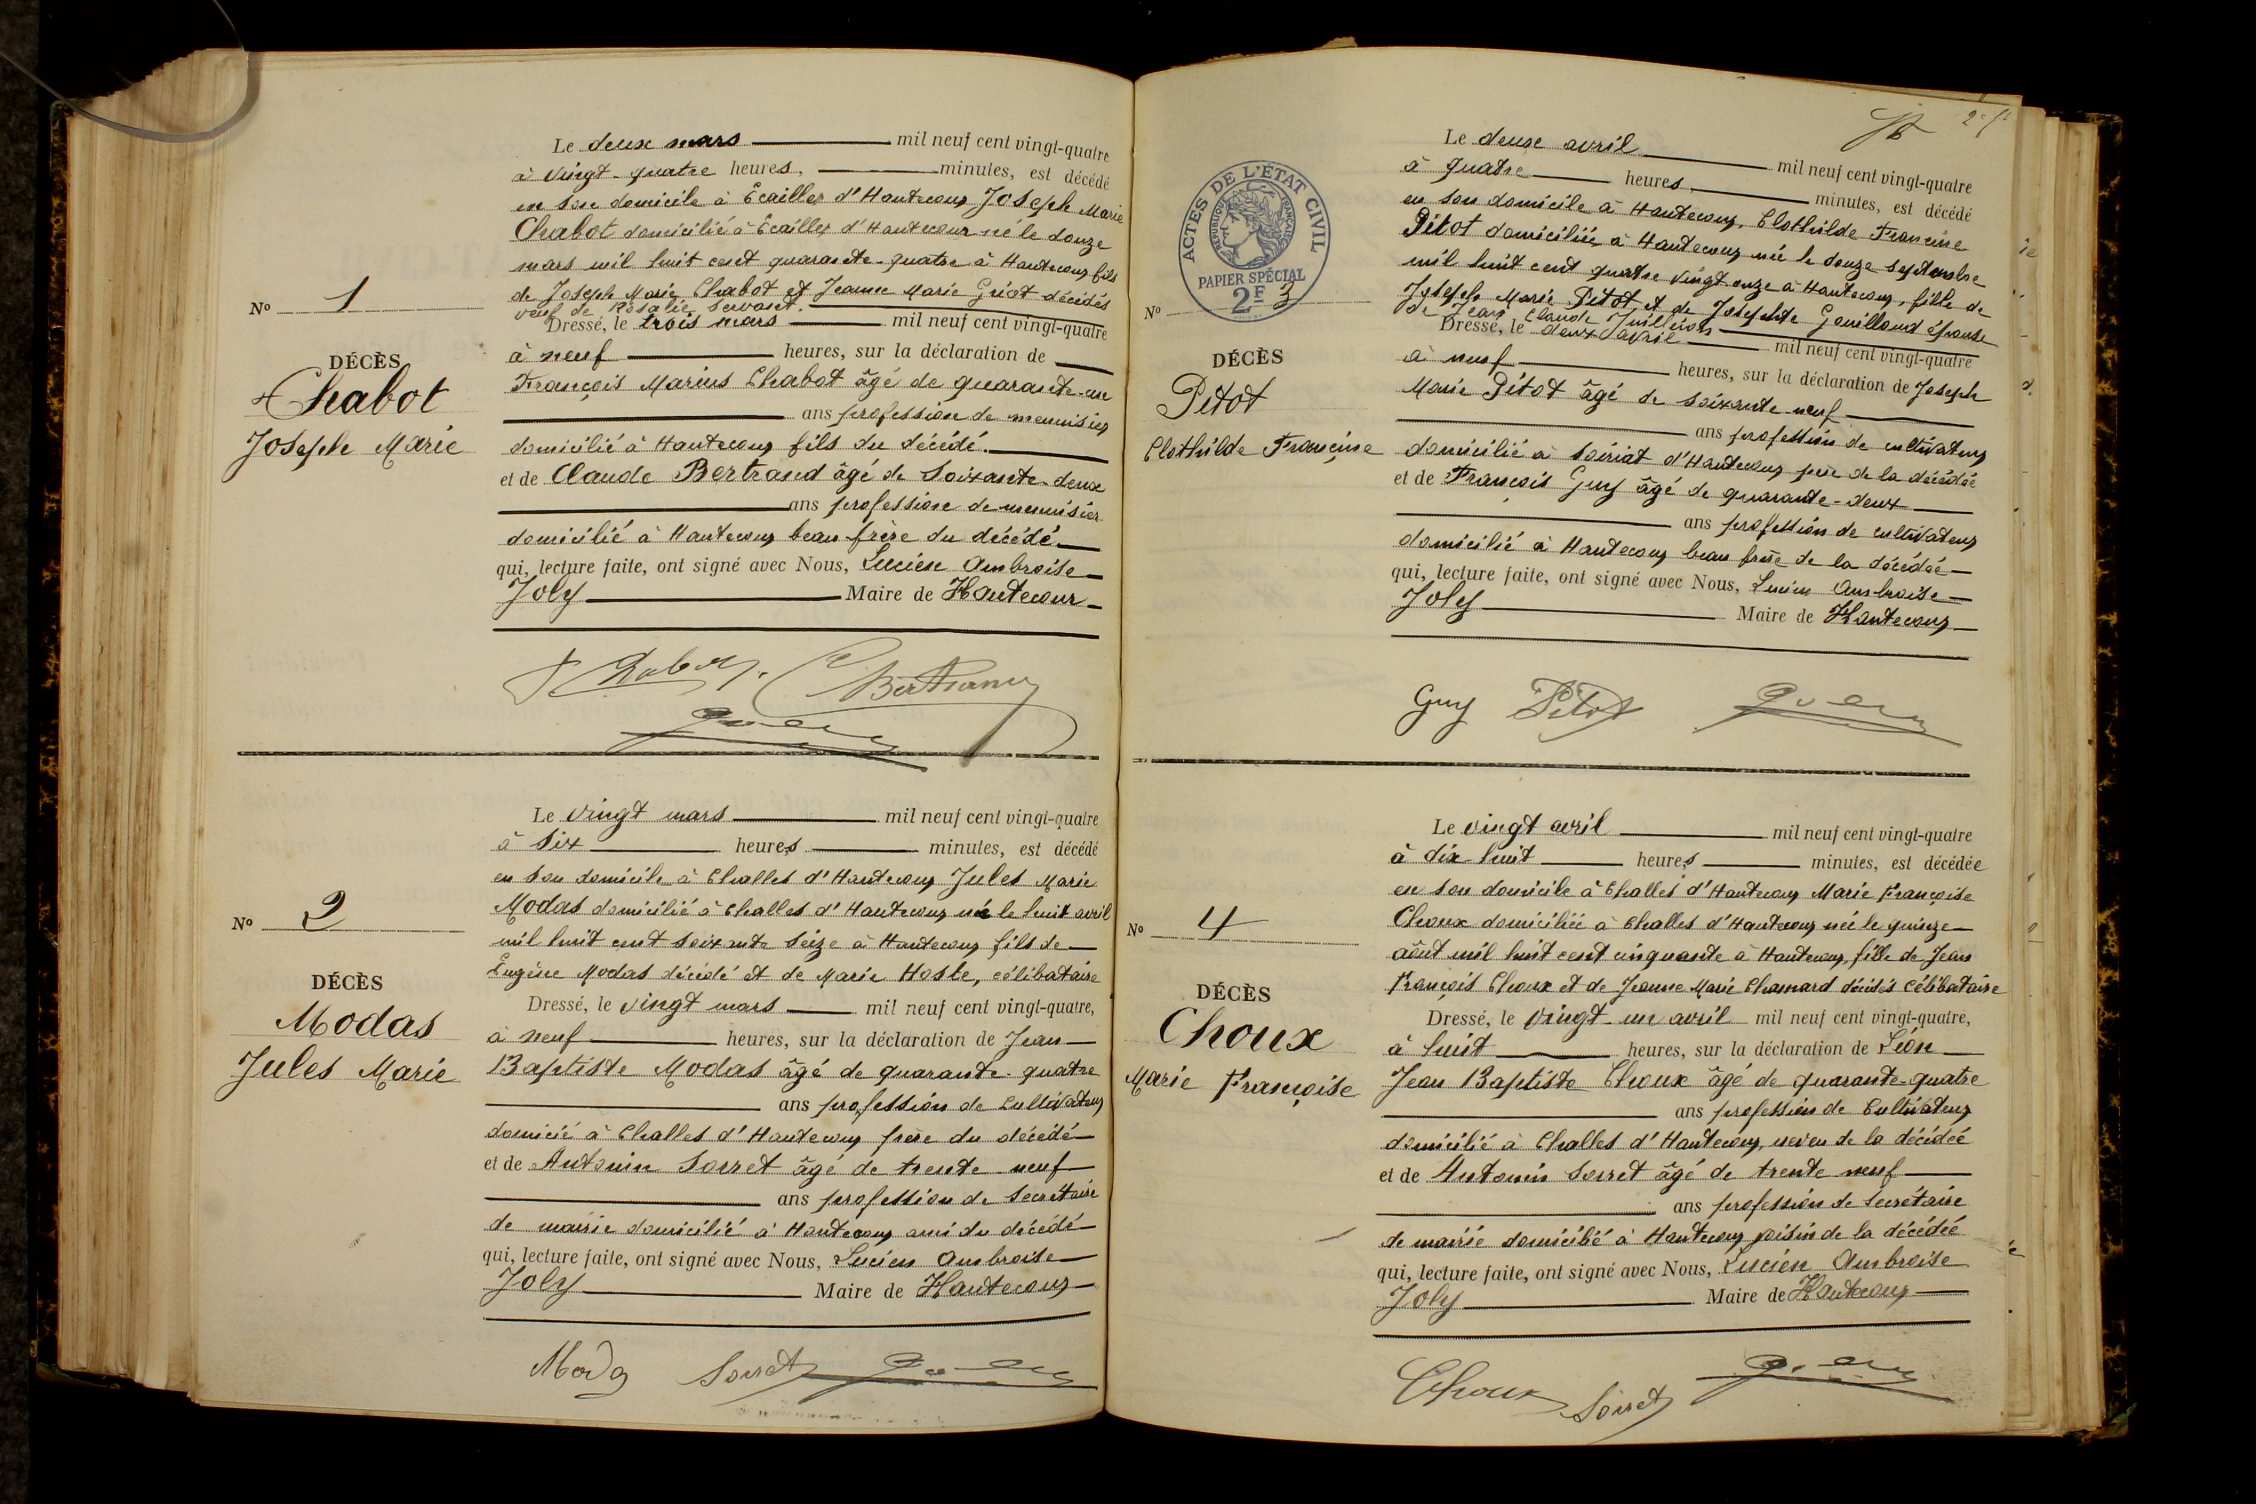 Le deux mars mil neuf cent vingt-quatre
à vingt-quatre heures, minutes, est décédé
en son domicile à Ecailler d'Hautecour Joseph Marie
Chabot domicilié à Ecailler d'Hautecour né le douze
mars mil huit cent quarante-quatre à Hautecour fils
de Joseph Marie Chabot et Jeanne Marie Griot décédés
veuf de Rosalie Servaset.
Nº 1
DÉCÈS
Chabot
Joseph Marie
Dressé, le trois mars mil neuf cent vingt-quatre
à neuf heures, sur la déclaration de
François Marius Chabot âgé de quarante-un
ans profession de menuisier
domicilié à Hautecour fils du décédé.
et de Claude Bertrand âgé de soixante-deux
ans profession de menuisier
domicilié à Hautecour beau frère du décédé
qui, lecture faite, ont signé avec Nous, Lucien Ambroise
Joly Maire de Hautecour
Chabot Bertrand
Le vingt mars mil neuf cent vingt-quatre
à six heures minutes, est décédé
en son domicile à Challes d'Hautecour Jules Marie
Modas domicilié à Challes d'Hautecour né le huit avril
mil huit cent soixante seize à Hautecour fils de
Eugène Modas décédé et de Marie Hoste, célibataire
Nº 2
DÉCÈS
Modas
Jules Marie
Dressé, le vingt mars mil neuf cent vingt-quatre,
à neuf heures, sur la déclaration de Jean
Baptiste Modas âgé de quarante-quatre
ans profession de cultivateur
domicié à Challes d'Hautecour frère du décédé
et de Antonin Sorret âgé de trente-neuf
ans profession de secrétaire
de mairie domicilié à Hautecour ami du décédé
qui, lecture faite, ont signé avec Nous, Lucien Ambroise
Joly Maire de Hautecour
Modas Sorret
ACTES DE L'ÉTAT CIVIL
RÉPUBLIQUE FRANÇAISE
PAPIER SPÉCIAL
2F
Le deux avril mil neuf cent vingt-quatre
à quatre heures, minutes, est décédé
en son domicile à Hautecour, Clothilde Francine
Pitot domiciliée à Hautecour née le douze septembre
mil huit cent quatre vingt onze à Hautecour, fille de
Joseph Marie Pitot et de Josephte Gouilloud épouse
de Jean Claude Juilleron
Nº 3
DÉCÈS
Pitot
Clothilde Françine
Dressé, le deux avril mil neuf cent vingt-quatre
à neuf heures, sur la déclaration de Joseph
Marie Pitot âgé de soixante-neuf
ans profession de cultivateur
domicilié à Soiriat d'Hautecour père de la décédée
et de François Guy âgé de quarante-deux
ans profession de cultivateur
domicilié à Hautecour beau frère de la décédée
qui, lecture faite, ont signé avec Nous, Lucien Ambroise
Joly Maire de Hautecour
Guy Pitot
Le vingt avril mil neuf cent vingt-quatre
à dix-huit heures minutes, est décédée
en son domicile à Challes d'Hautecour Marie Françoise
Choux domiciliée à Challes d'Hautecour née le quinze
août mil huit cent cinquante à Hautecour, fille de Jean
François Choux et de Jeanne Marie Chamard décédés célibataire
Nº 4
DÉCÈS
Choux
Marie Françoise
Dressé, le vingt-un avril mil neuf cent vingt-quatre,
à huit heures, sur la déclaration de Léon
Jean Baptiste Choux âgé de quarante-quatre
ans profession de cultivateur
domicilié à Challes d'Hautecour, neveu de la décédée
et de Antonin Sorret âgé de trente neuf
ans profession de secrétaire
de mairie domicilié à Hautecour voisin de la décédée
qui, lecture faite, ont signé avec Nous, Lucien Ambroise
Joly Maire de Hautecour
Choux Sorret